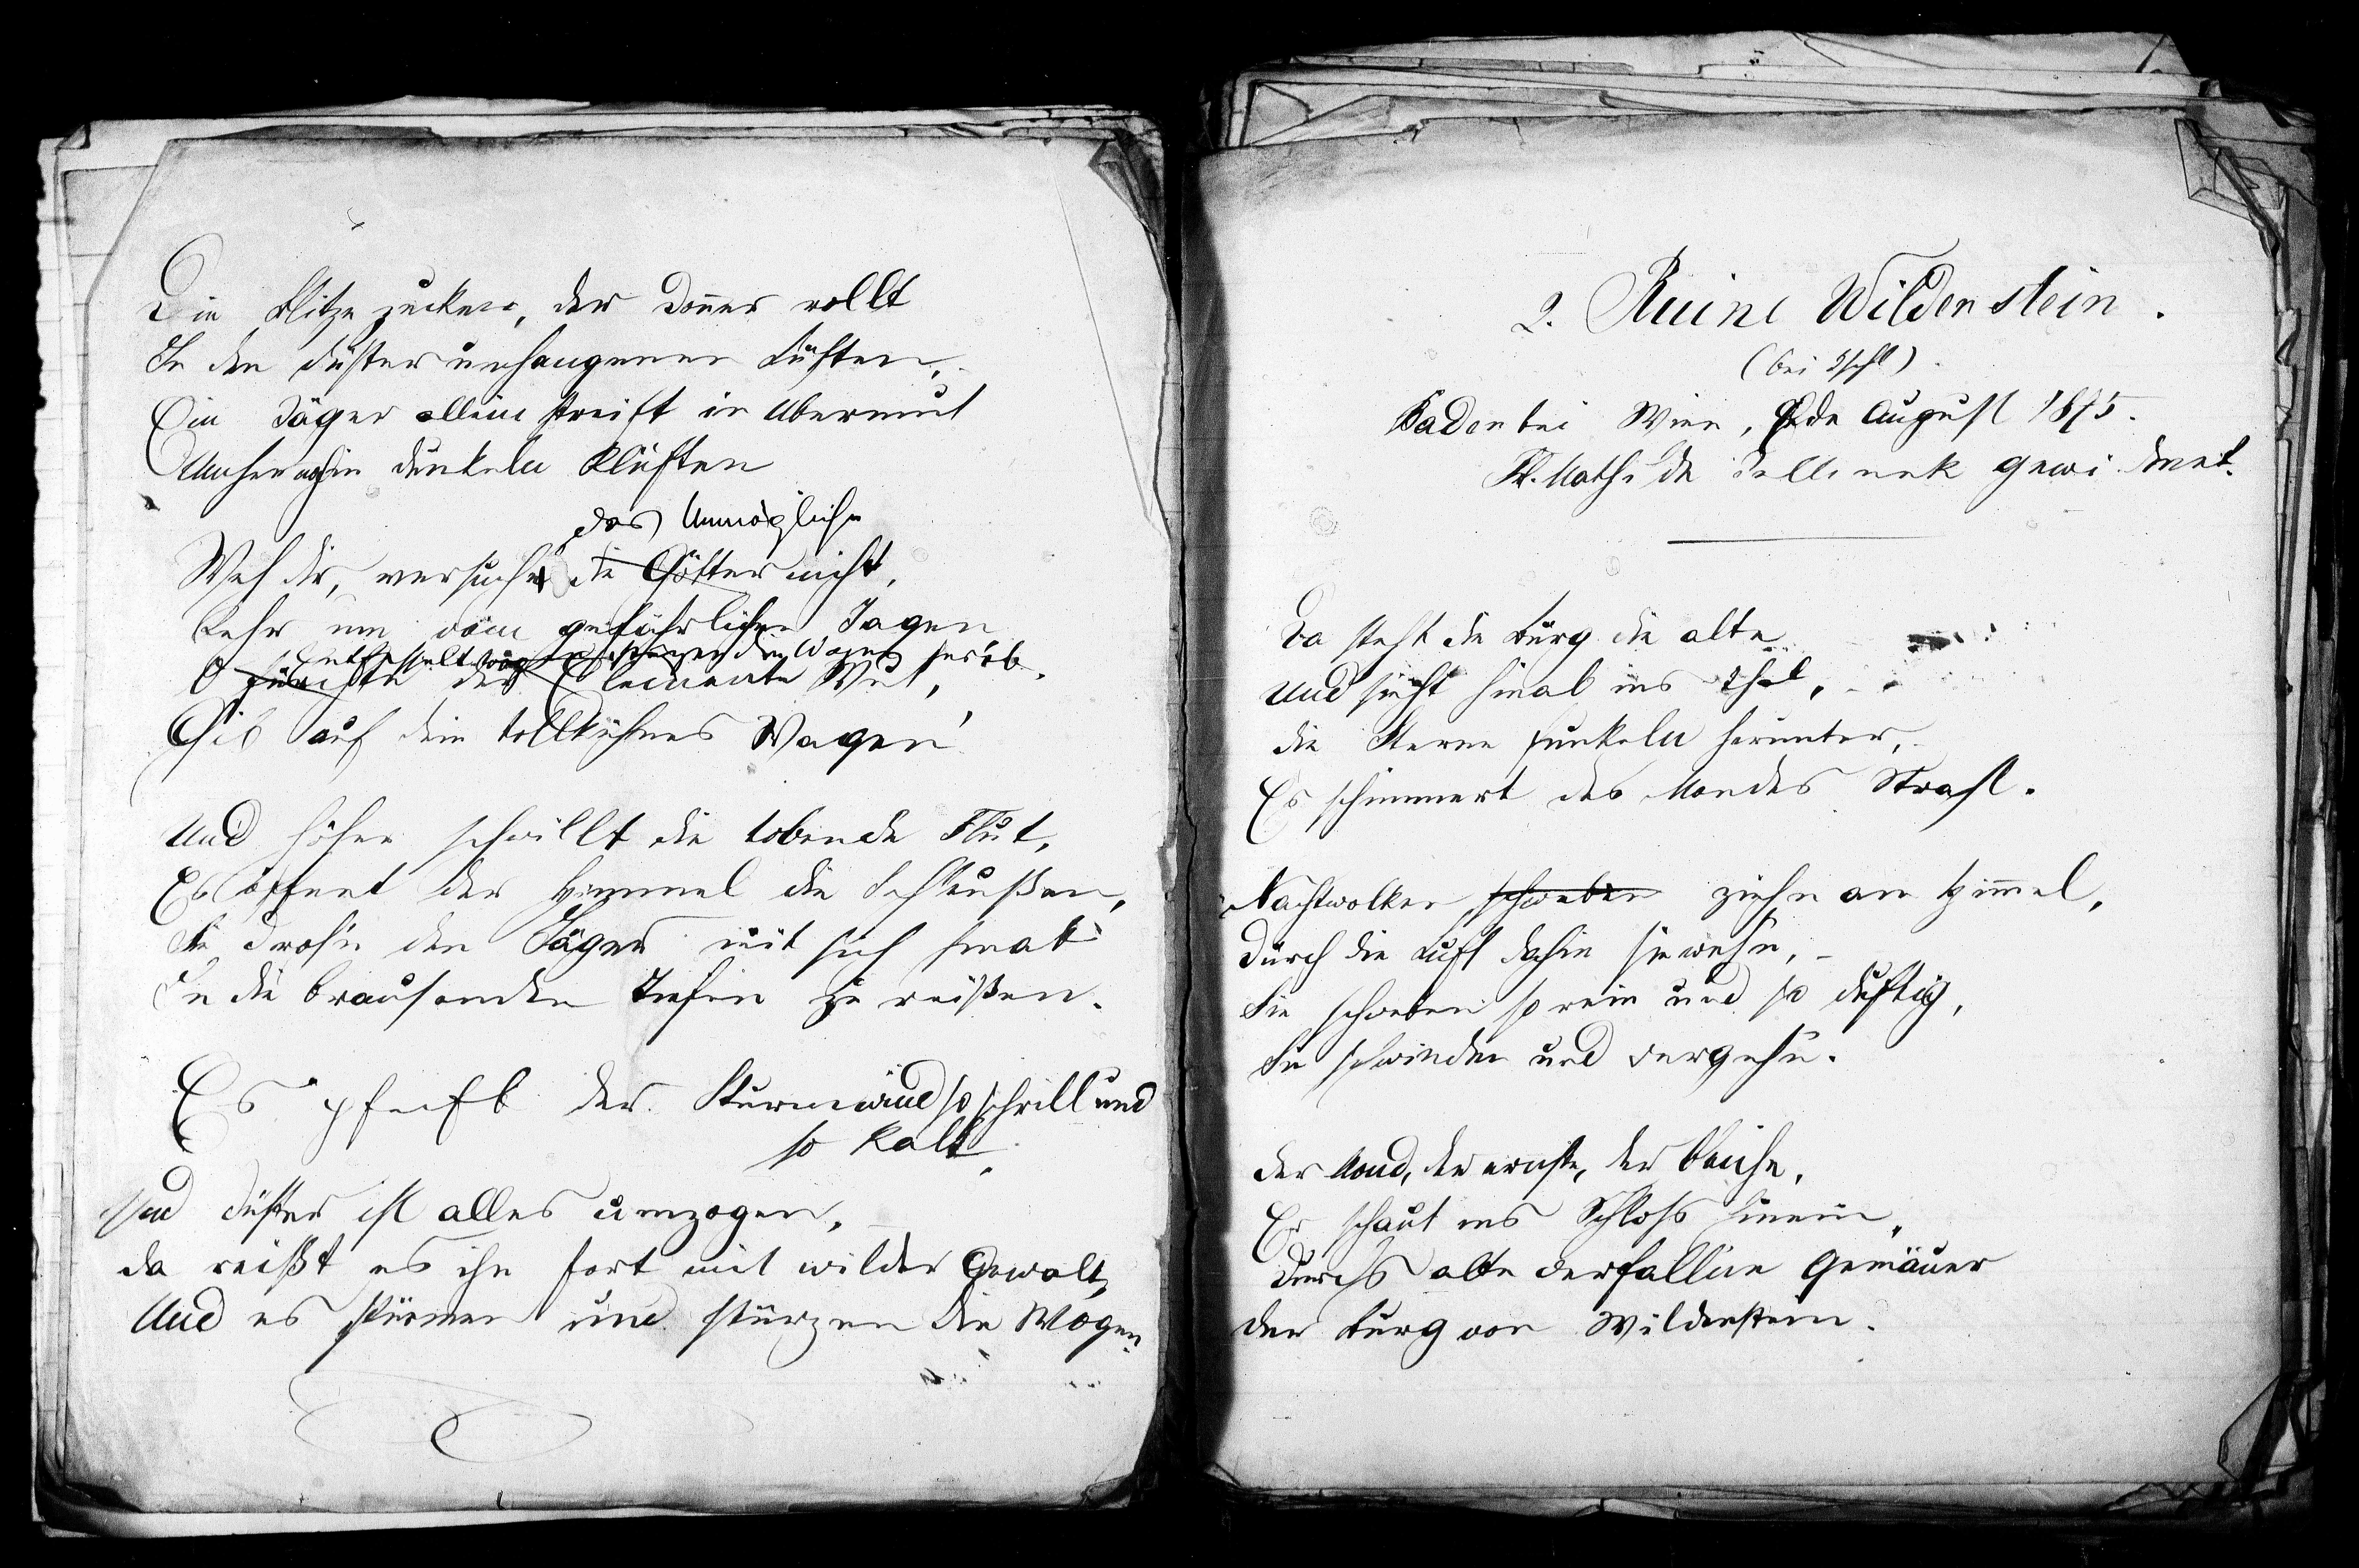 Die Blitze zucken, der Donner rollt
In den düster umhangenen Lüften,
Ein Jäger allein streift in Übermut
Umher in dunkeln Klüften
das Unmögliche
Weh dir, versuche die Götter nicht,
Kehr um vom gefährlichen Jagen
Entfesselt stürzen die Wogen herab.
O fürchte der Elemente Wut,
Gib auf dein tollkühnes Wagen!
Und höher schwillt die tobende Flut,
Es öffnet der Himmel die Schleußen,
Sie drohn den Jäger mit sich hinab
In die brausenden Tiefen zu reißen.
Es pfeift der Sturmwind so schrill und
so kalt,
Und düster ist alles umzogen,
Da reißt es ihn fort mit wilder Gewalt,
Und es stürmen und stürzen die Wogen.
2. Ruine Wildenstein.
(bei Ischl)
Baden bei Wien, Ende August 1875.
Frl. Mathilde Jellinek gewidmet.
Da steht die Burg die alte
Und sieht hinab ins Thal,
Die Sterne funkeln herunter,
Es schimmert des Mondes Strahl.
Nachtwolken schweben ziehn am Himmel,
Durch die Luft dahin sie wehn,
Sie schweben so rein und so duftig,
Sie schwinden und vergehn.
Der Mond, der ernste, der bleiche,
Er schaut ins Schloß hinein,
Durchs alte verfallene Gemäuer
Der Burg von Wildenstein.